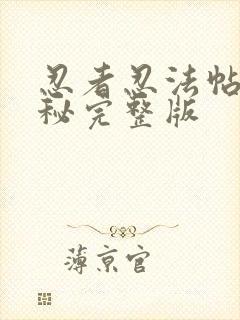 忍者忍法帖
秘完整版
薄京官